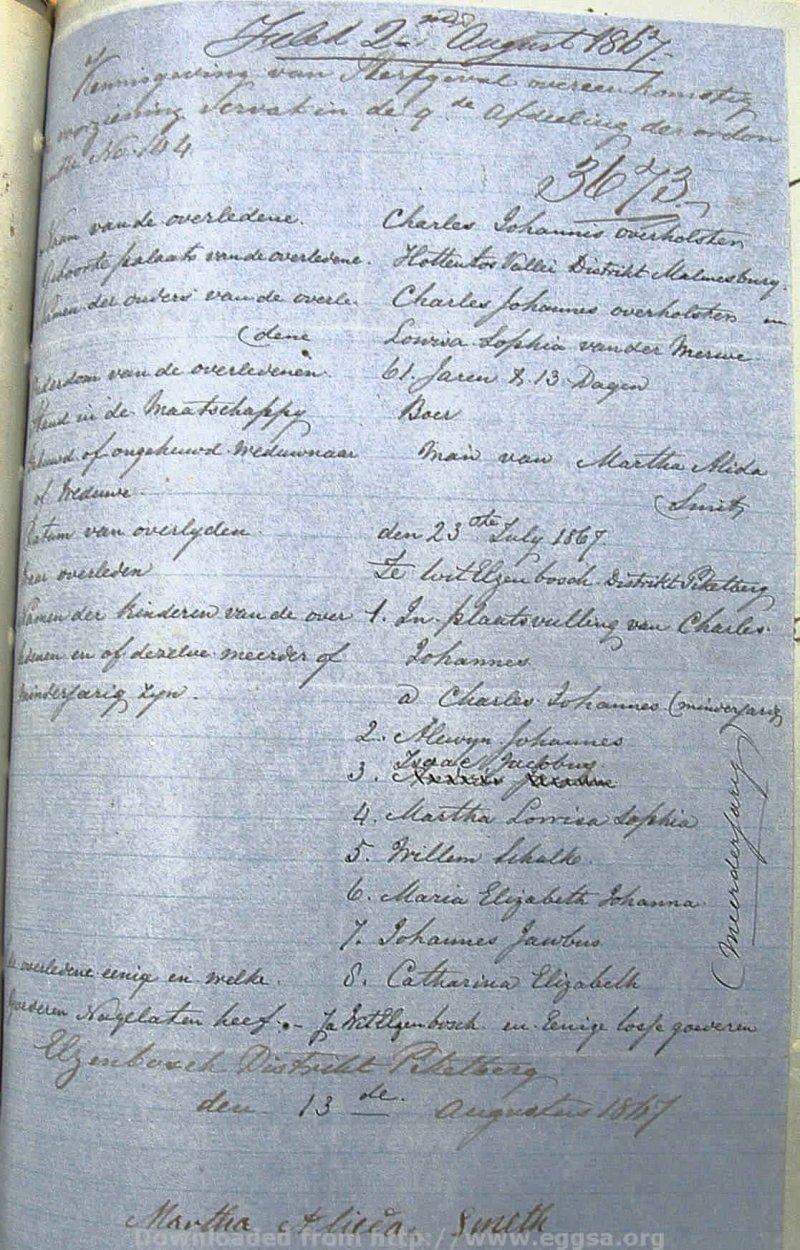 Filed 2nd August 1867.
Kennisgeving van Sterfgeval overeenkomstig
voorziening Servat in de 9de afdeeling der ordon
No. 144
3673
Naam van de overledene. Charles Johannis overholsten
Geboorte palaats van de overledene. Hottentos Vallei Distrikt Malmesburg.
Namen der ouders van de overle- Charles Johannes overholsten en
dene Lowisa Sophia van der Merwe
Ouderdom van de overledenen. 61 Jaren & 13 Dagen
Stand in de Maatschappy Boer
Gehuwd of ongehuwd Weduwnaar Man van Martha Alida
of Weduwe. Smit
Datum van overlyden. den 23ste July 1867.
Waar overleden Te WitElzenbosch Distrikt Piketberg
Namen der kinderen van de over 1. In plaatsvulling van Charles
ledenen en of dezelve meerder of Johannes
minderjarig zyn. a Charles Johannes (minderjarig)
2. Alewyn Johannes
3. Isaac Jacobus
4. Martha Lowisa Sophia
5. Willem Schalk
6. Maria Elizabeth Johanna
7. Johannes Jacobus
(Meerderjarig)
de overledene eenige en welke 8. Catharina Elizabeth
goederen Nagelaten heef. - Ja WitElzenbosch en Eenige losse goederen
Elzenbosch Distrikt Piketberg
den 13de Augustus 1867
Martha Alieda Smeth
Downloaded from http://www.eggsa.org